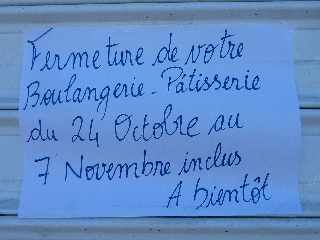 Fermeture de votre
Boulangerie - Pâtisserie
du 24 Octobre au
7 Novembre inclus
A bientôt